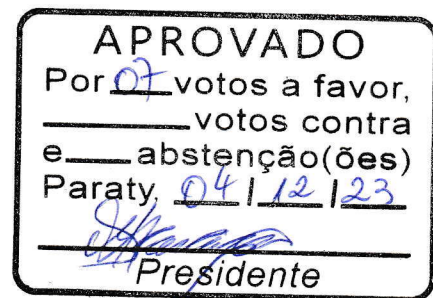 APROVADO
Por 07 votos a favor,
votos contra
e abstenção(ões)
Paraty, 04 | 12 | 23
Presidente